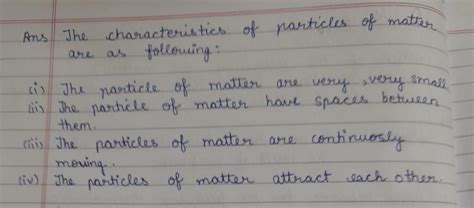 Ans The characteristics of particles of matter
are as following:
(i) The particle of matter are very, very small
(ii) The particle of matter have spaces between
them.
(iii) The particles of matter are continuosly
moving.
(iv) The particles of matter attract each other.